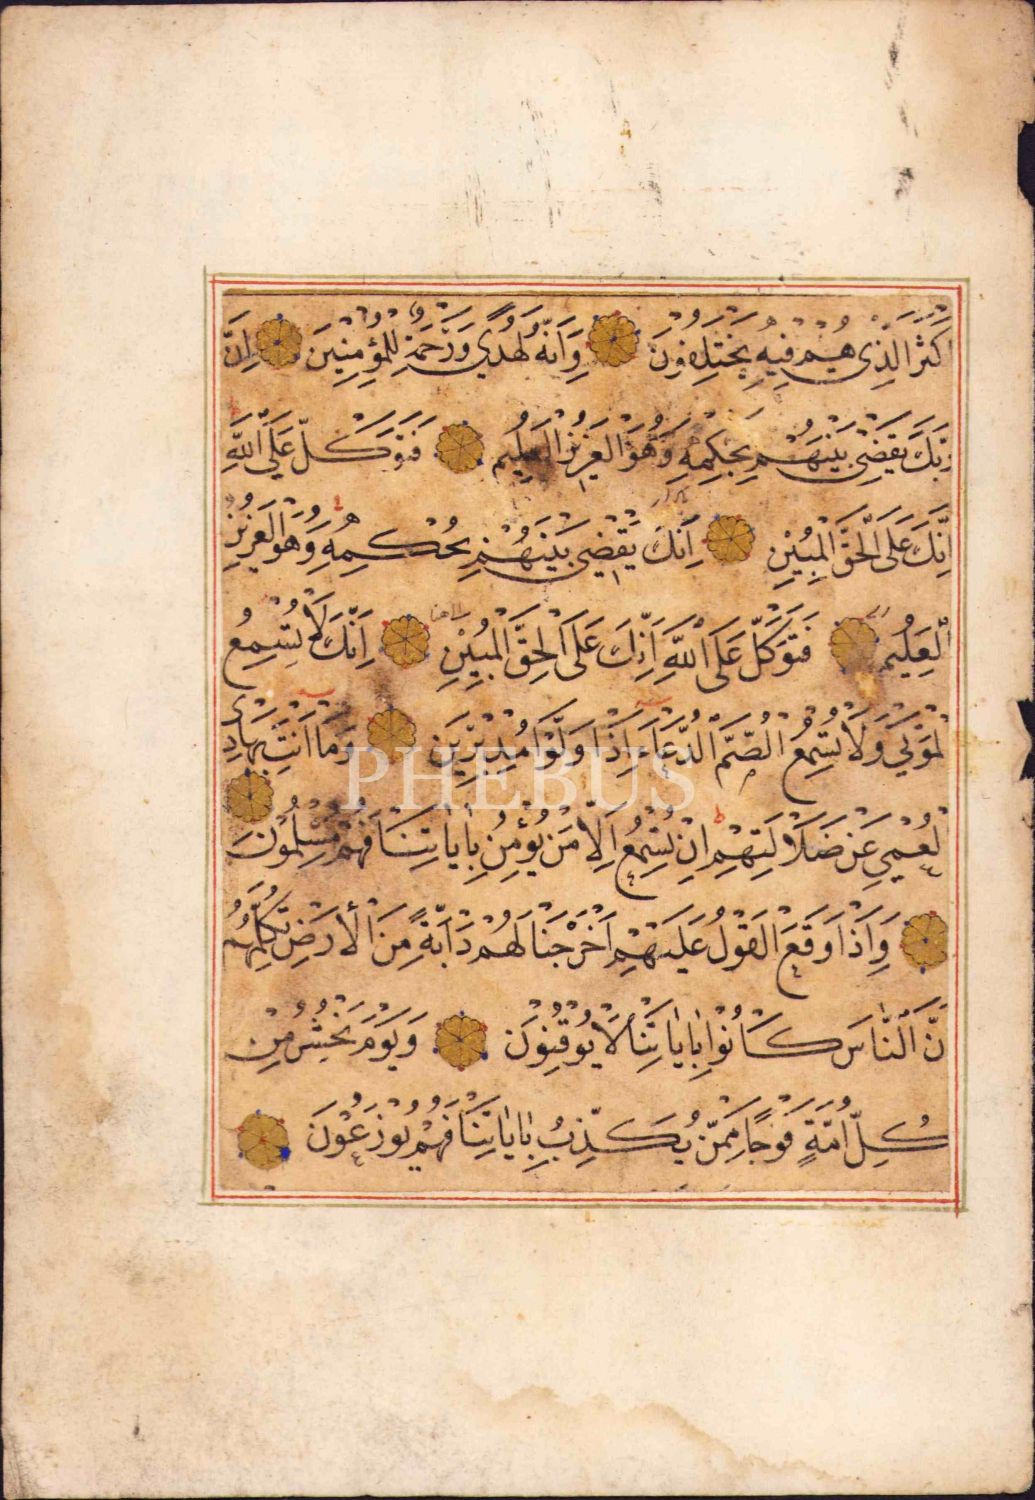 اَكْثَرَ الَّذِي هُمْ فِيهِ يَخْتَلِفُونَ وَاِنَّهُ لَهُدًى وَرَحْمَةٌ لِلْمُؤْمِنِينَ اِنَّ
رَبَّكَ يَقْضِي بَيْنَهُمْ بِحُكْمِهِ وَهُوَ الْعَزِيزُ الْعَلِيمُ فَتَوَكَّلْ عَلَى اللَّهِ
اِنَّكَ عَلَى الْحَقِّ الْمُبِينِ اِنَّكَ يَقْضِي بَيْنَهُمْ بِحُكْمِهِ وَهُوَ الْعَزِيزُ
الْعَلِيمُ فَتَوَكَّلْ عَلَى اللَّهِ اِنَّكَ عَلَى الْحَقِّ الْمُبِينِ اِنَّكَ لَا تُسْمِعُ
الْمَوْتَى وَلَا تُسْمِعُ الصُّمَّ الدُّعَاءَ اِذَا وَلَّوْا مُدْبِرِينَ وَمَا اَنْتَ بِهَادِي
PHEBUS
الْعُمْيِ عَنْ ضَلَالَتِهِمْ اِنْ تُسْمِعُ اِلَّا مَنْ يُؤْمِنُ بِاٰيَاتِنَا فَهُمْ مُسْلِمُونَ
وَاِذَا وَقَعَ الْقَوْلُ عَلَيْهِمْ اَخْرَجْنَا لَهُمْ دَابَّةً مِنَ الْاَرْضِ تُكَلِّمُهُمْ
نَّ النَّاسَ كَانُوا بِاٰيَاتِنَا لَا يُوقِنُونَ وَيَوْمَ نَحْشُرُ مِنْ
كُلِّ اُمَّةٍ فَوْجًا مِمَّنْ يُكَذِّبُ بِاٰيَاتِنَا فَهُمْ يُوزَعُونَ